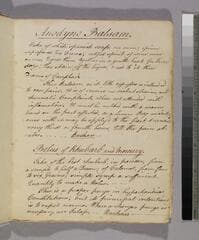 Anodyne Balsam.
Take of white Spanish soap one ounce, opium
unprepared two Drams, rectified spirit of wine
nine Ounces. Digest them together in a gentle heat for three
days; then strain off the liquor & add to it three
Drams of Camphire.
This Balsam, as its title expresses, is intended
to ease pain. It is of service in violent strains and
rheumatic Complaints, when not attended with
inflammation. It must be rubbed with a warm
hand on the part affected, or a linen Rag moist-
ened with it may be applied to the part & renewed
every third or fourth hour, till the pain ab-
ates. Buchan
Bolus of Rhubarb and Mercury.
Take of the best rhubarb, in powder, from
a scruple to half a Dram; of Calomel, from four
to six Grains, simple Syrup a sufficient
Quantity to make a Bolus.
This is a proper purge in hypochondriac
Constitutions; but its principal intention is
to expel worms. Where a stronger purge is
necessary, use Jalap. Buchan